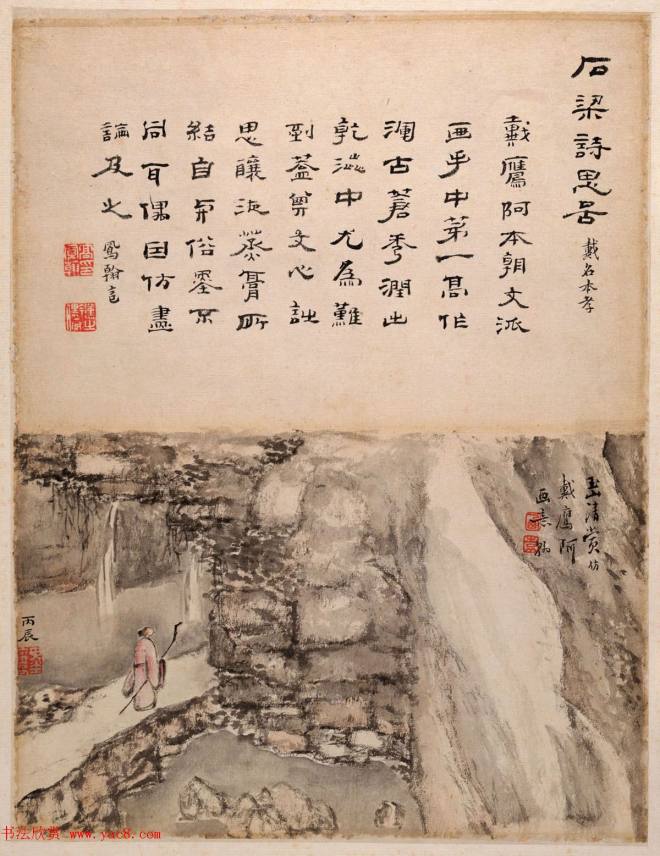 石梁詩思啚
戴名本孝
戴鷹阿本朝文派
画手中第一高作
古蒼秀潤出
乾澁中尤為難
到蓋文心
思釀蒸膏所
結自俗墨
同耳偶因仿畫
論及之 鳳翰言
清賞仿
戴鷹阿
画意 翰
丙辰
书法欣赏 www.yac8.com